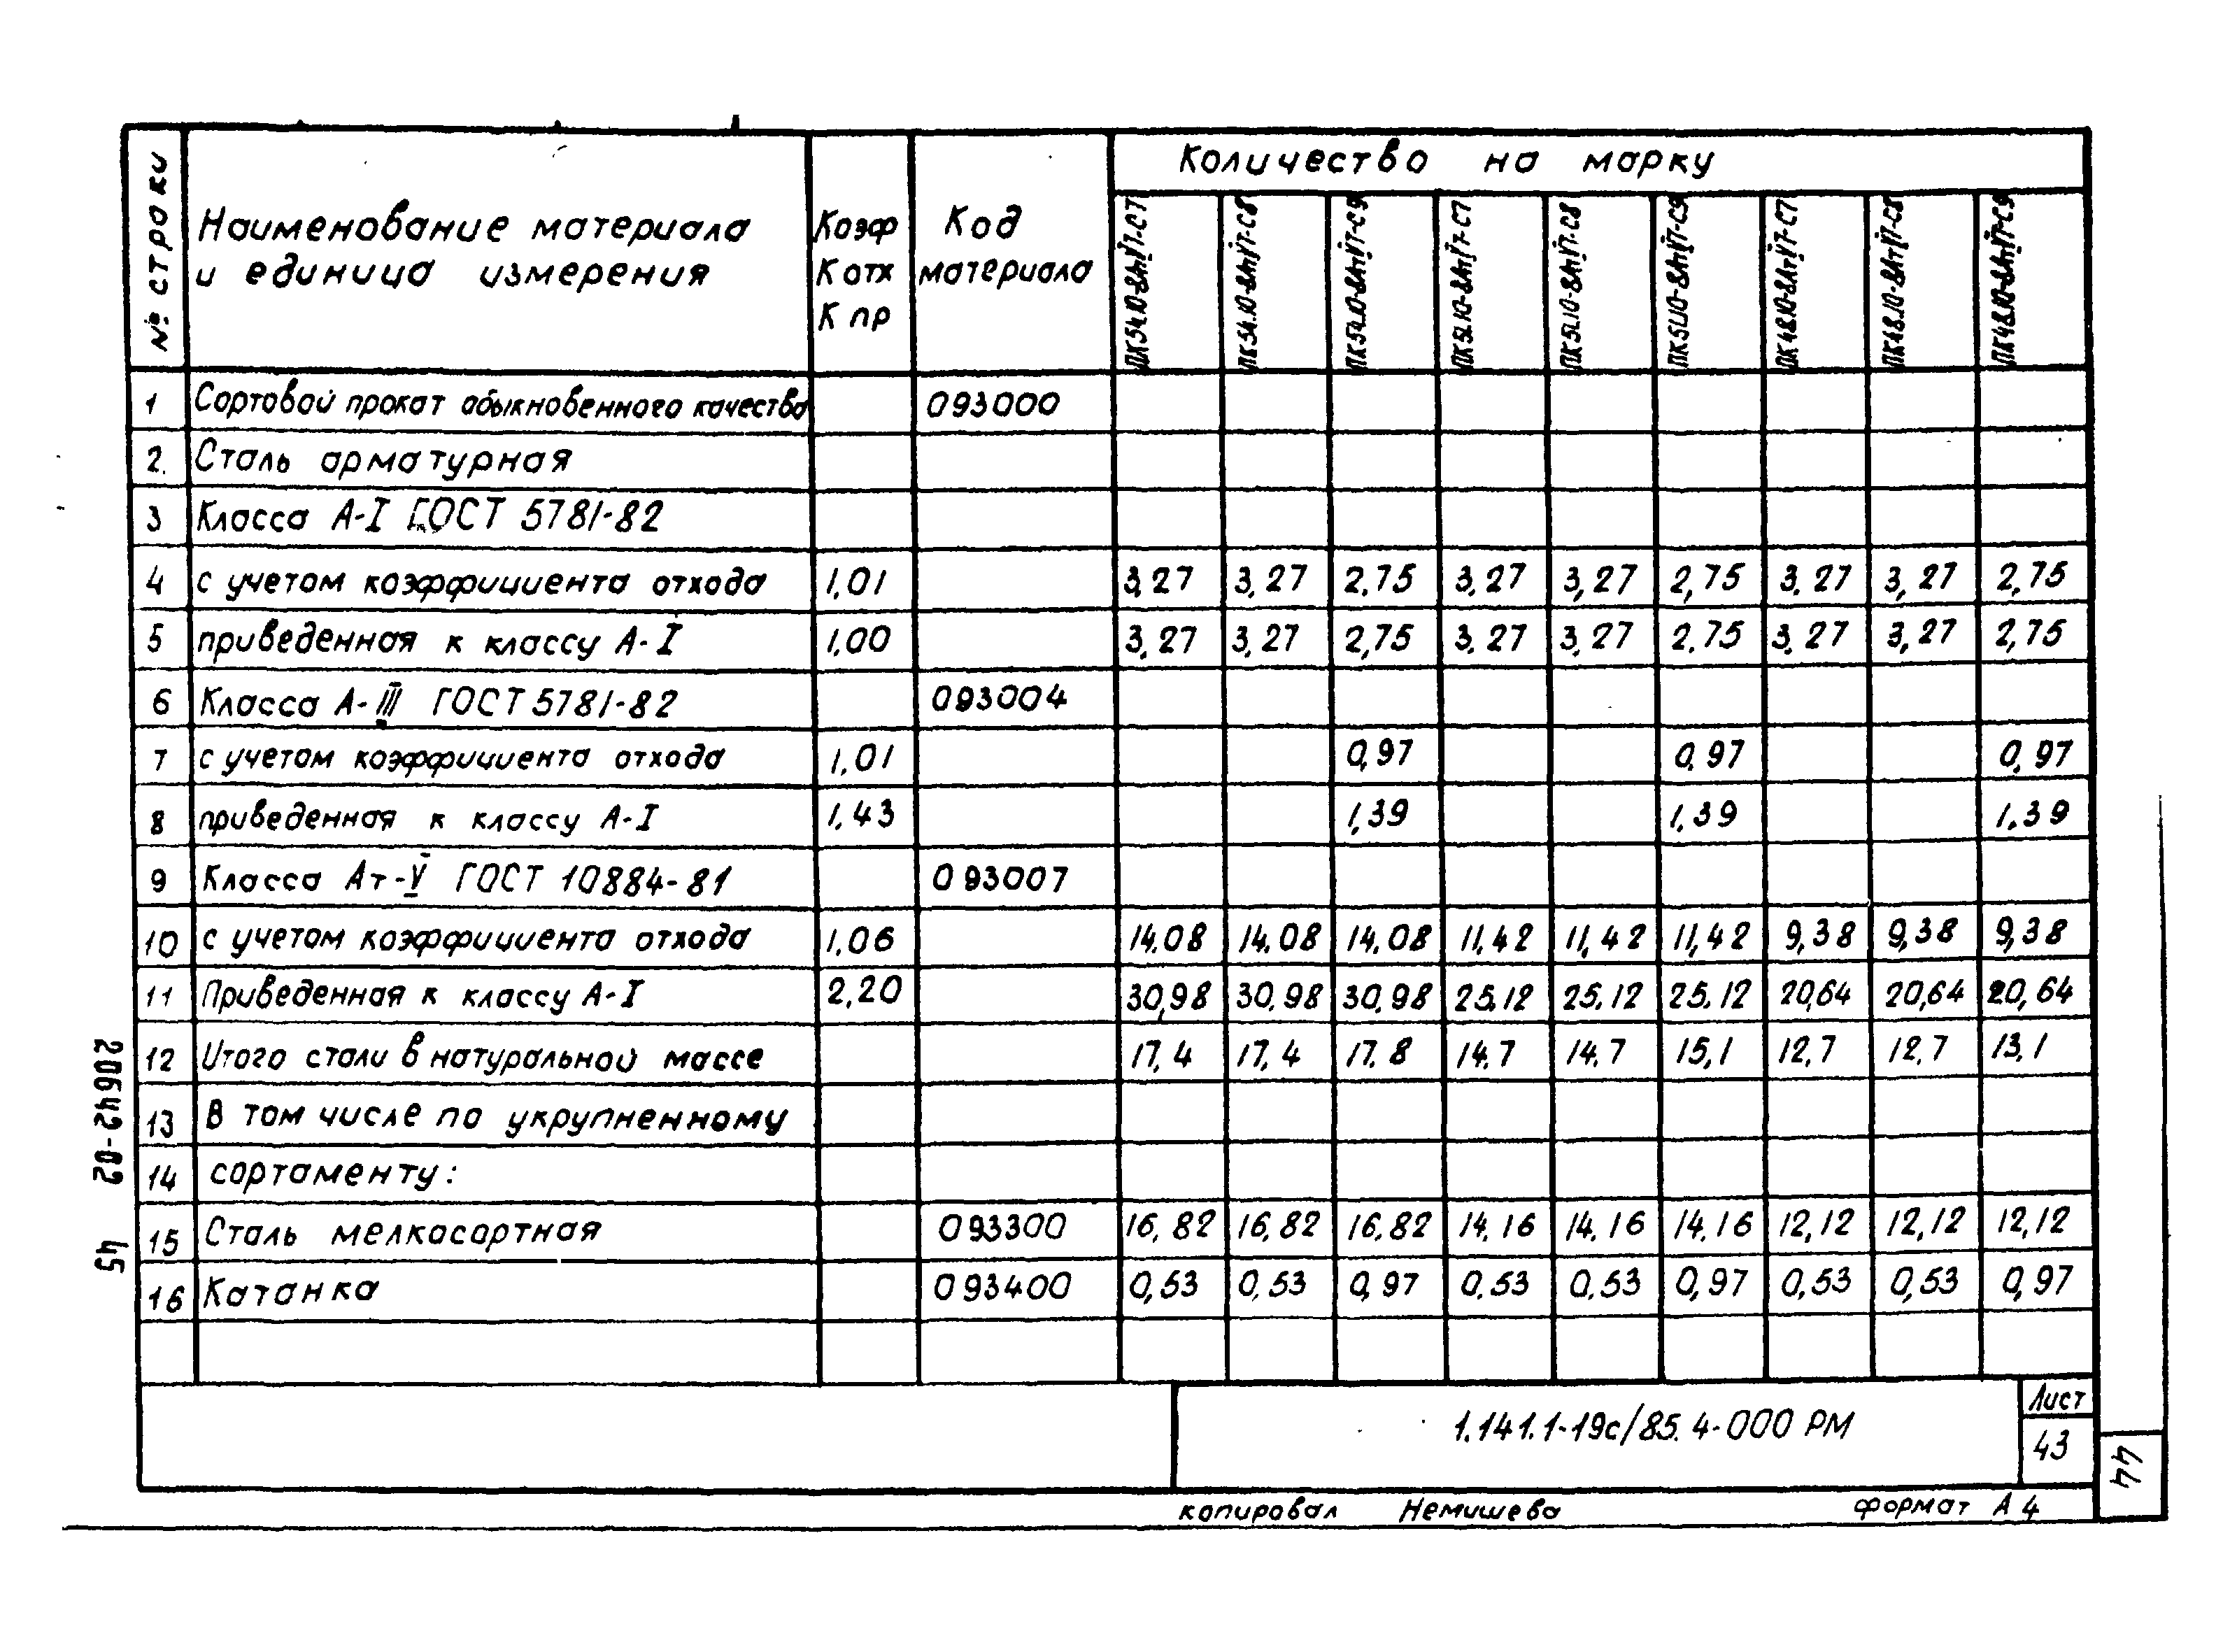 № строки
Наименование материала
и единица измерения
Коэф
К отх
К пр
Код
материала
Количество на марку
ПК54.10-8АтV-С7 ПК54.10-8АтV-С8 ПК54.10-8АтV-С9 ПК51.10-8АтV-С7 ПК51.10-8АтV-С8 ПК51.10-8АтV-С9 ПК48.10-8АтV-С7 ПК48.10-8АтV-С8 ПК48.10-8АтV-С9
1 Сортовой прокат обыкновенного качества 093000
2. Сталь арматурная
3 Класса А-I ГОСТ 5781-82
4 с учетом коэффициента отхода 1,01 3,27 3,27 2,75 3,27 3,27 2,75 3,27 3,27 2,75
5 приведенная к классу А-I 1,00 3,27 3,27 2,75 3,27 3,27 2.75 3,27 3,27 2,75
6 Класса А-III ГОСТ 5781-82 093004
7 с учетом коэффициента отхода 1,01 0,97 0,97 0,97
8 приведенная к классу А-I 1,43 1,39 1,39 1,39
9 Класса Ат-V ГОСТ 10884-81 093007
10 с учетом коэффициента отхода 1,06 14,08 14,08 14,08 11,42 11,42 11,42 9,38 9,38 9,38
11 Приведенная к классу А-I 2,20 30,98 30,98 30,98 25,12 25,12 25,12 20,64 20,64 20,64
12 Итого стали в натуральной массе 17,4 17,4 17,8 14,7 14,7 15,1 12,7 12,7 13,1
13 В том числе по укрупненному
14 сортаменту:
15 Сталь мелкосортная 093300 16,82 16,82 16,82 14,16 14,16 14,16 12,12 12,12 12,12
16 Катанка 093400 0,53 0,53 0,97 0,53 0,53 0,97 0,53 0,53 0,97
20642-02 45
1.141.1-19с/85.4-000 РМ
Лист
43
44
копировал Немишева формат А4